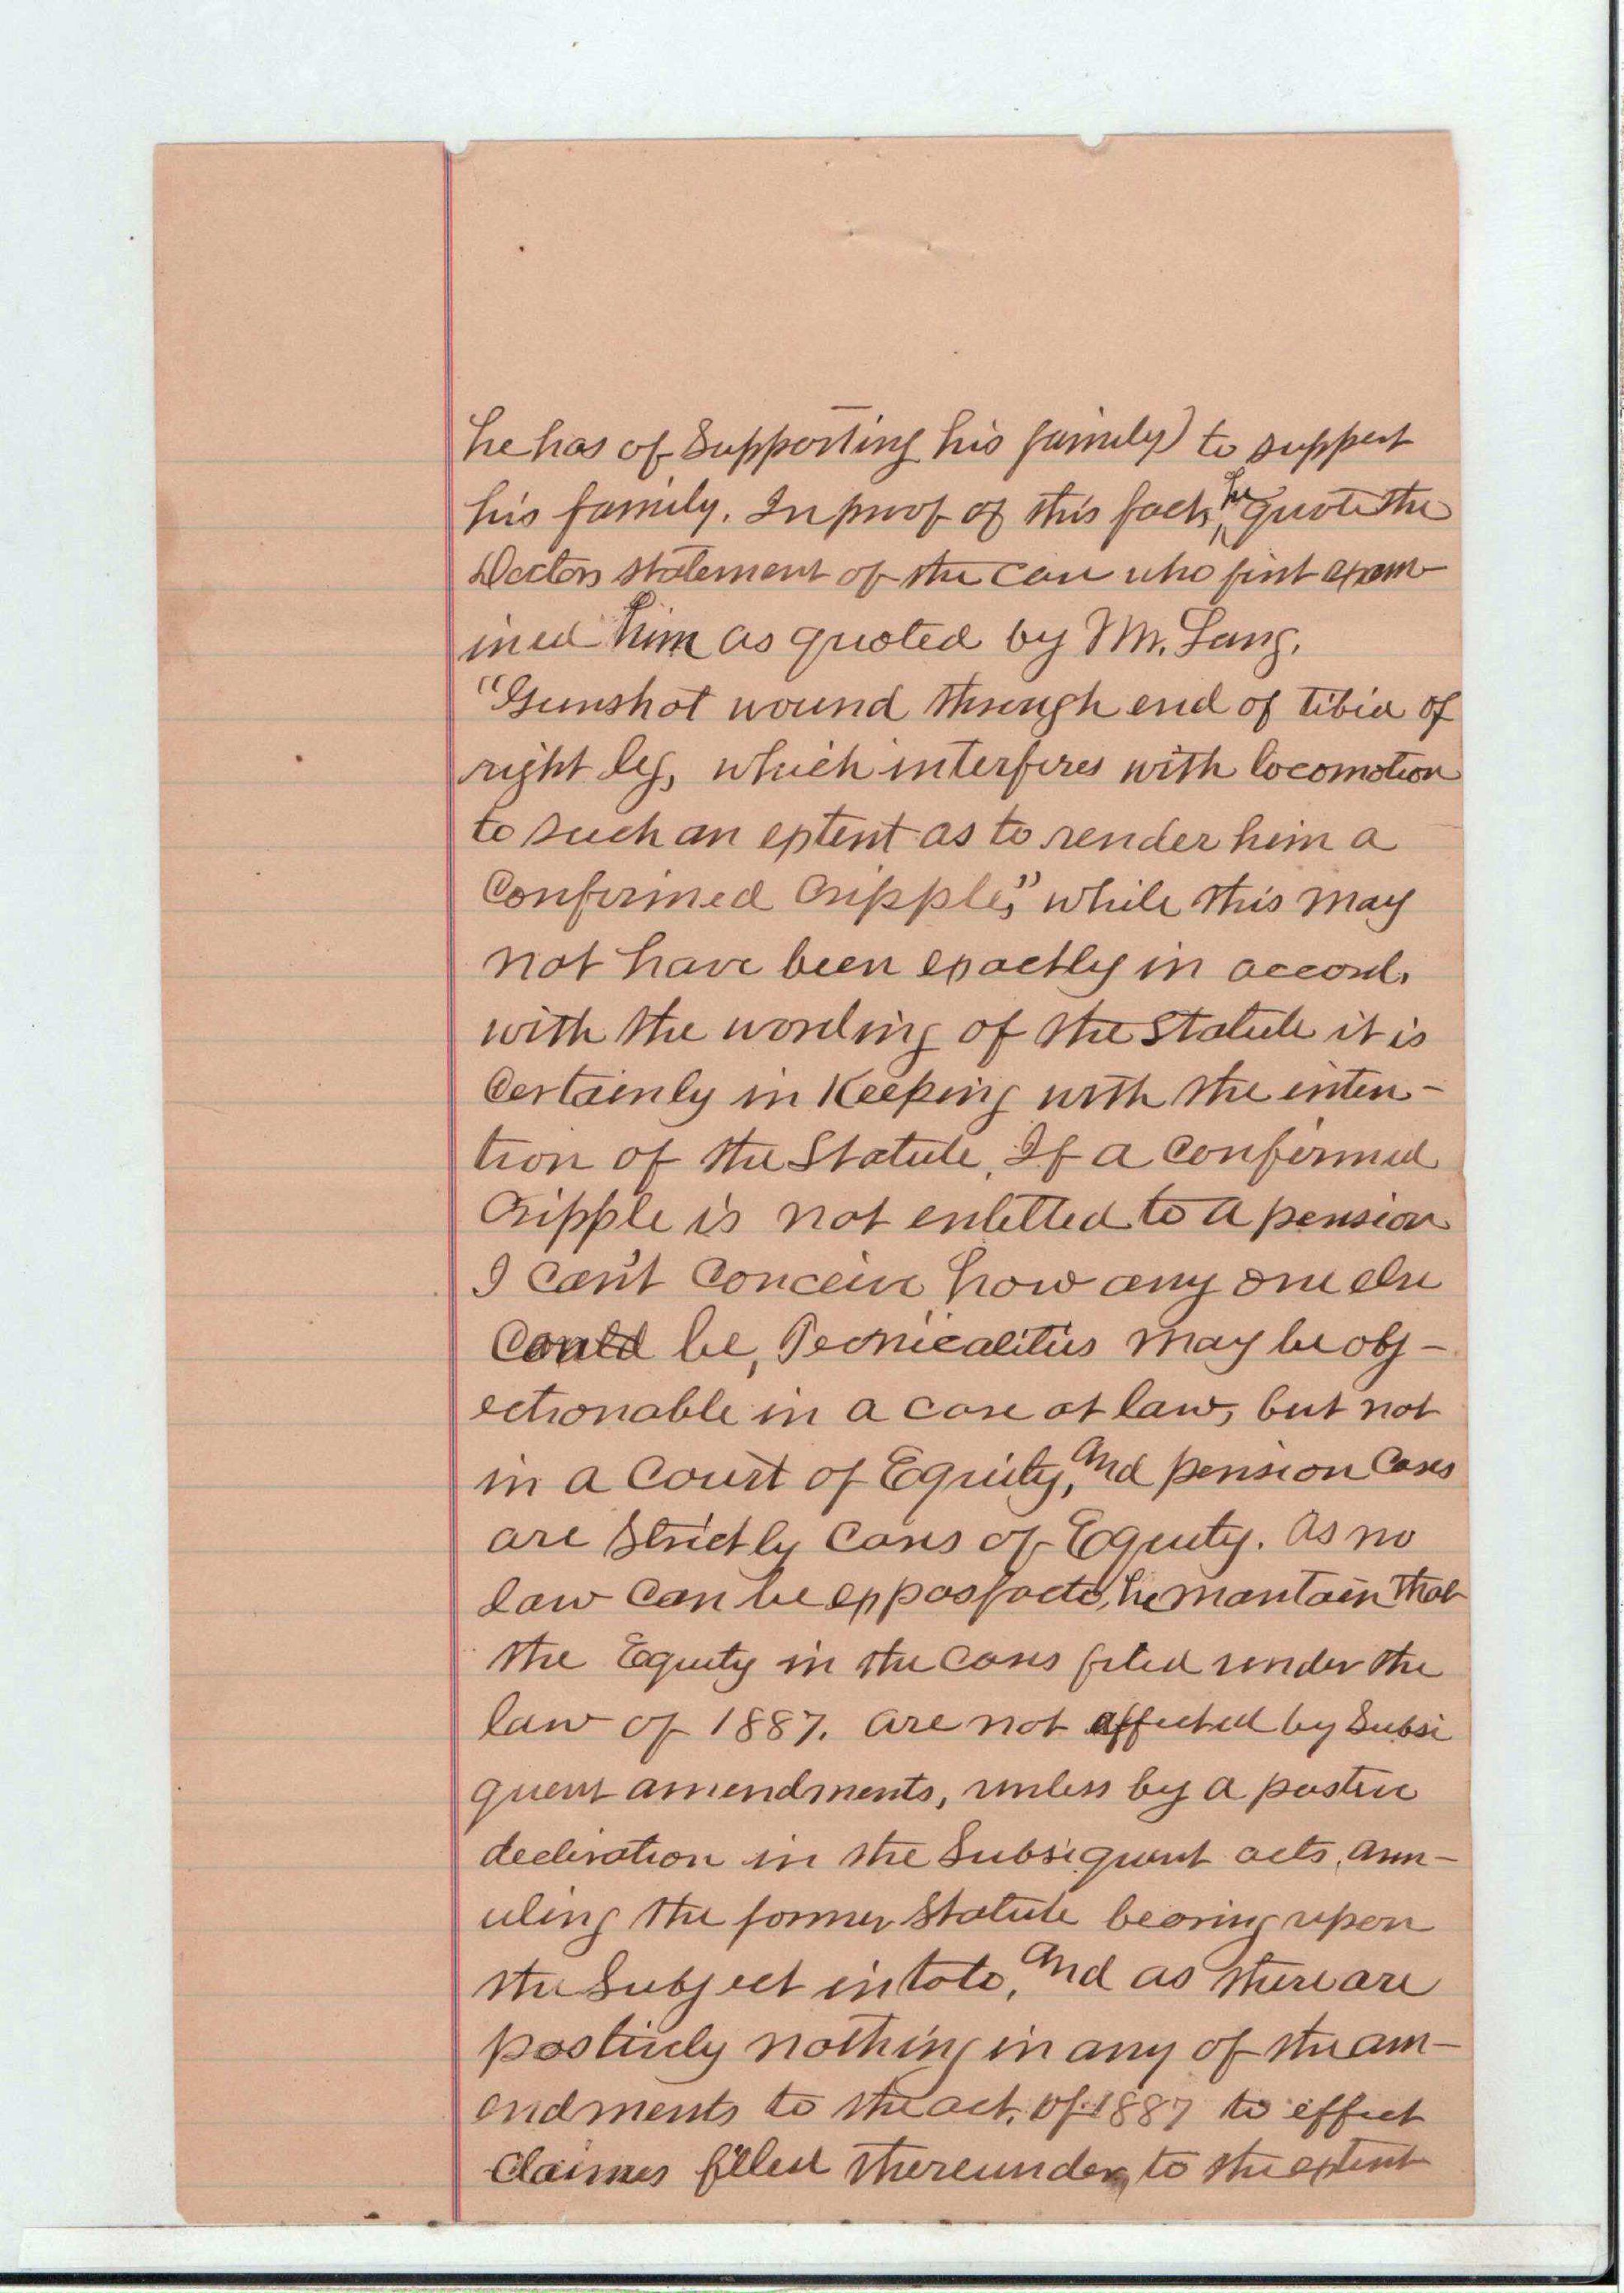 he has of Supporting his family) to support
his family. In proof of this fact, he quote the
Doctors statement of the case who first exam-
ined him as quoted by Mr. Lang.
"Gunshot wound through end of tibia of
right leg, which interferes with locomotion
to such an extent as to render him a
Confirmed Cripple," while this may
not have been exactly in accord.
with the wording of the Statute it is
Certainly in Keeping with the inten-
tion of the Statute, If a Confirmed
Cripple is not entitled to a pension
I can't Conceive how any one else
Could be, Tecnicalities may be obj-
ectionable in a case at law, but not
in a Court of Equity, and pension Cases
are Strictly Cases of Equity. As no
law can be exposfacto, he mantain that
the Equity in the Cases filed under the
law of 1887. are not affected by Subsi
quent amendments, unless by a postive
decliration in the Subsiquent acts, ann-
uling the former Statute bearing upon
the Subject in toto, and as there are
postively nothing in any of the am-
endments to the act. of 1887 to effect
Claimes filled thereunder, to the extent